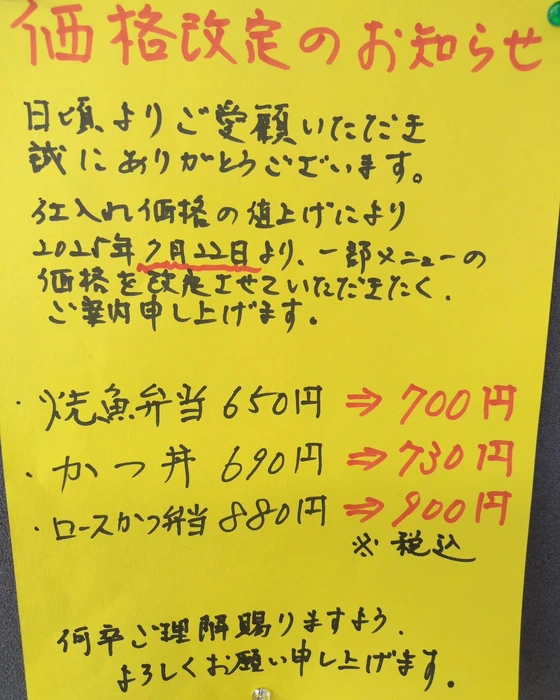 価格改定のお知らせ
日頃よりご愛顧いただき
誠にありがとうございます。
仕入れ価格の値上げにより
2025年7月22日より、一部メニューの
価格を改定させていただきたく、
ご案内申し上げます。
・焼魚弁当 650円 ⇒ 700円
・かつ丼 690円 ⇒ 730円
・ロースかつ弁当 880円 ⇒ 900円
※税込
何卒ご理解賜りますよう、
よろしくお願い申し上げます。